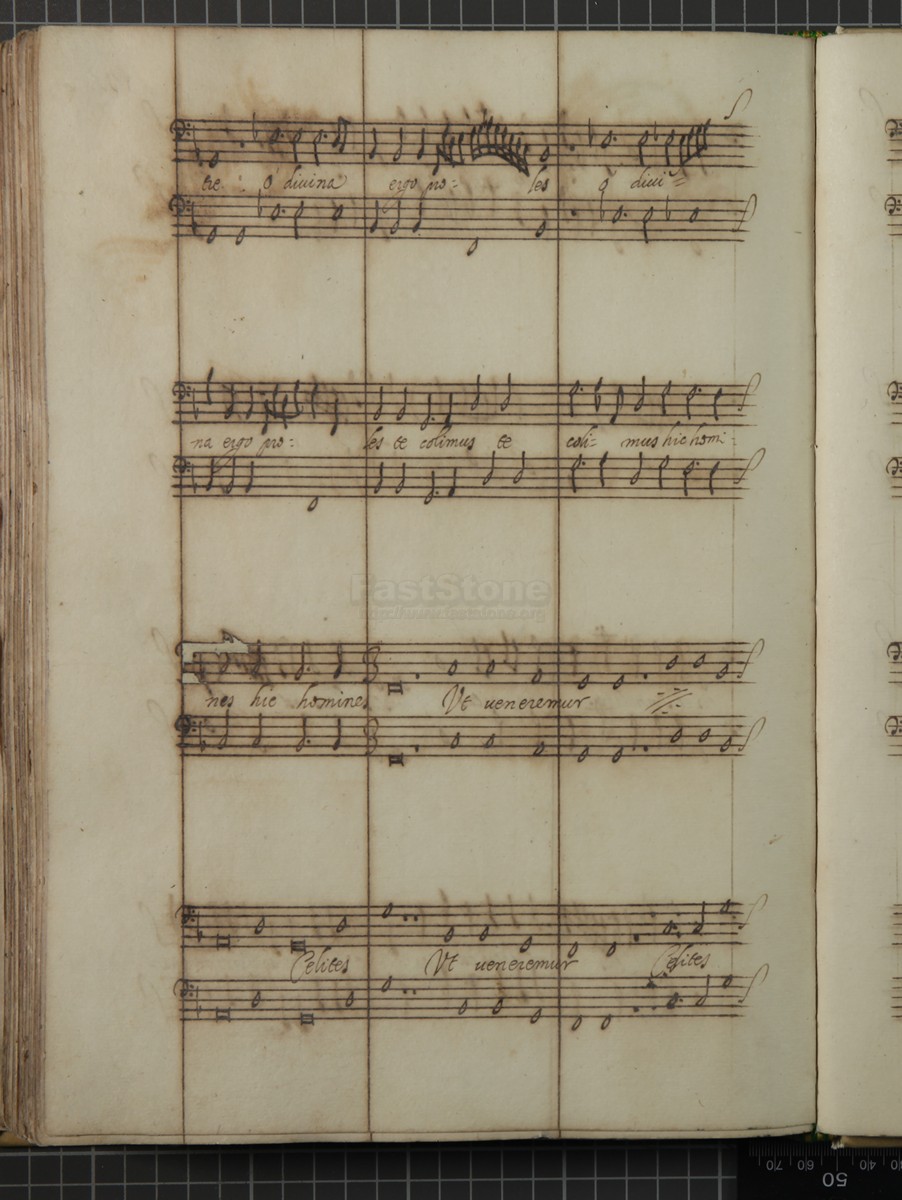 tre o divina ergo pro= les o divi=
na ergo pro= les te colimus te coli= mus hic homi=
FastStone
http://www.faststone.org
nes hic homines Ut ueneremur
Celites Ut ueneremur Celites
70 60 50 40